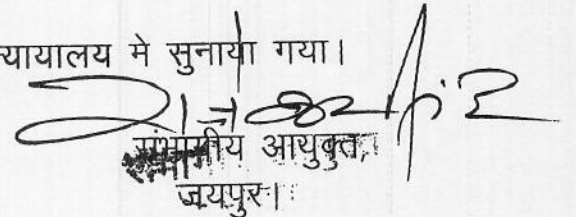 न्यायालय मे सुनाया गया।
संभागीय आयुक्त,
जयपुर।